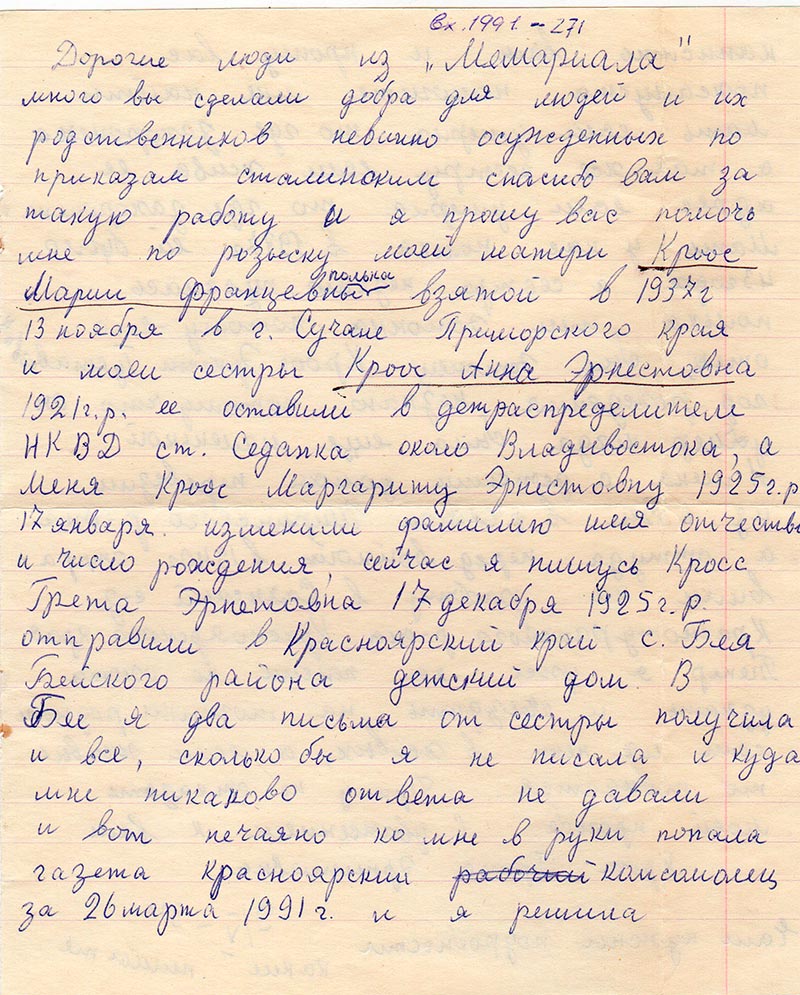 Вх. 1991. - 271
Дорогие люди из „Мемариала"
много вы сделали добра для людей и их
родственников невино осужденных по
приказам сталинским спасибо вам за
такую работу и я прошу вас помочь
мне по розыску моей матери Кроос
полька
Марии Францевны взятой в 1937г
13 ноября в г. Сучане Приморского края
и моей сестры Кроос Анна Эрнестовна
1921г.р. ее оставили в детраспределителе
НКВД ст. Седанка около Владивостока, а
меня Кроос Маргариту Эрнестовну 1925г.р
17 января. изменили фамилию имя отчество
и число рождения, сейчас я пишусь Кросс
Грета Эрнетовна 17 декабря 1925г.р.
отправили в Красноярский край с. Бея
Бейского района детский дом. В
Бее я два письма от сестры получила
и все, сколько бы я не писала и куда
мне никаково ответа не давали
и вот нечаяно ко мне в руки попала
газета Красноярский рабочий камсамолец
за 26 марта 1991г. и я решила